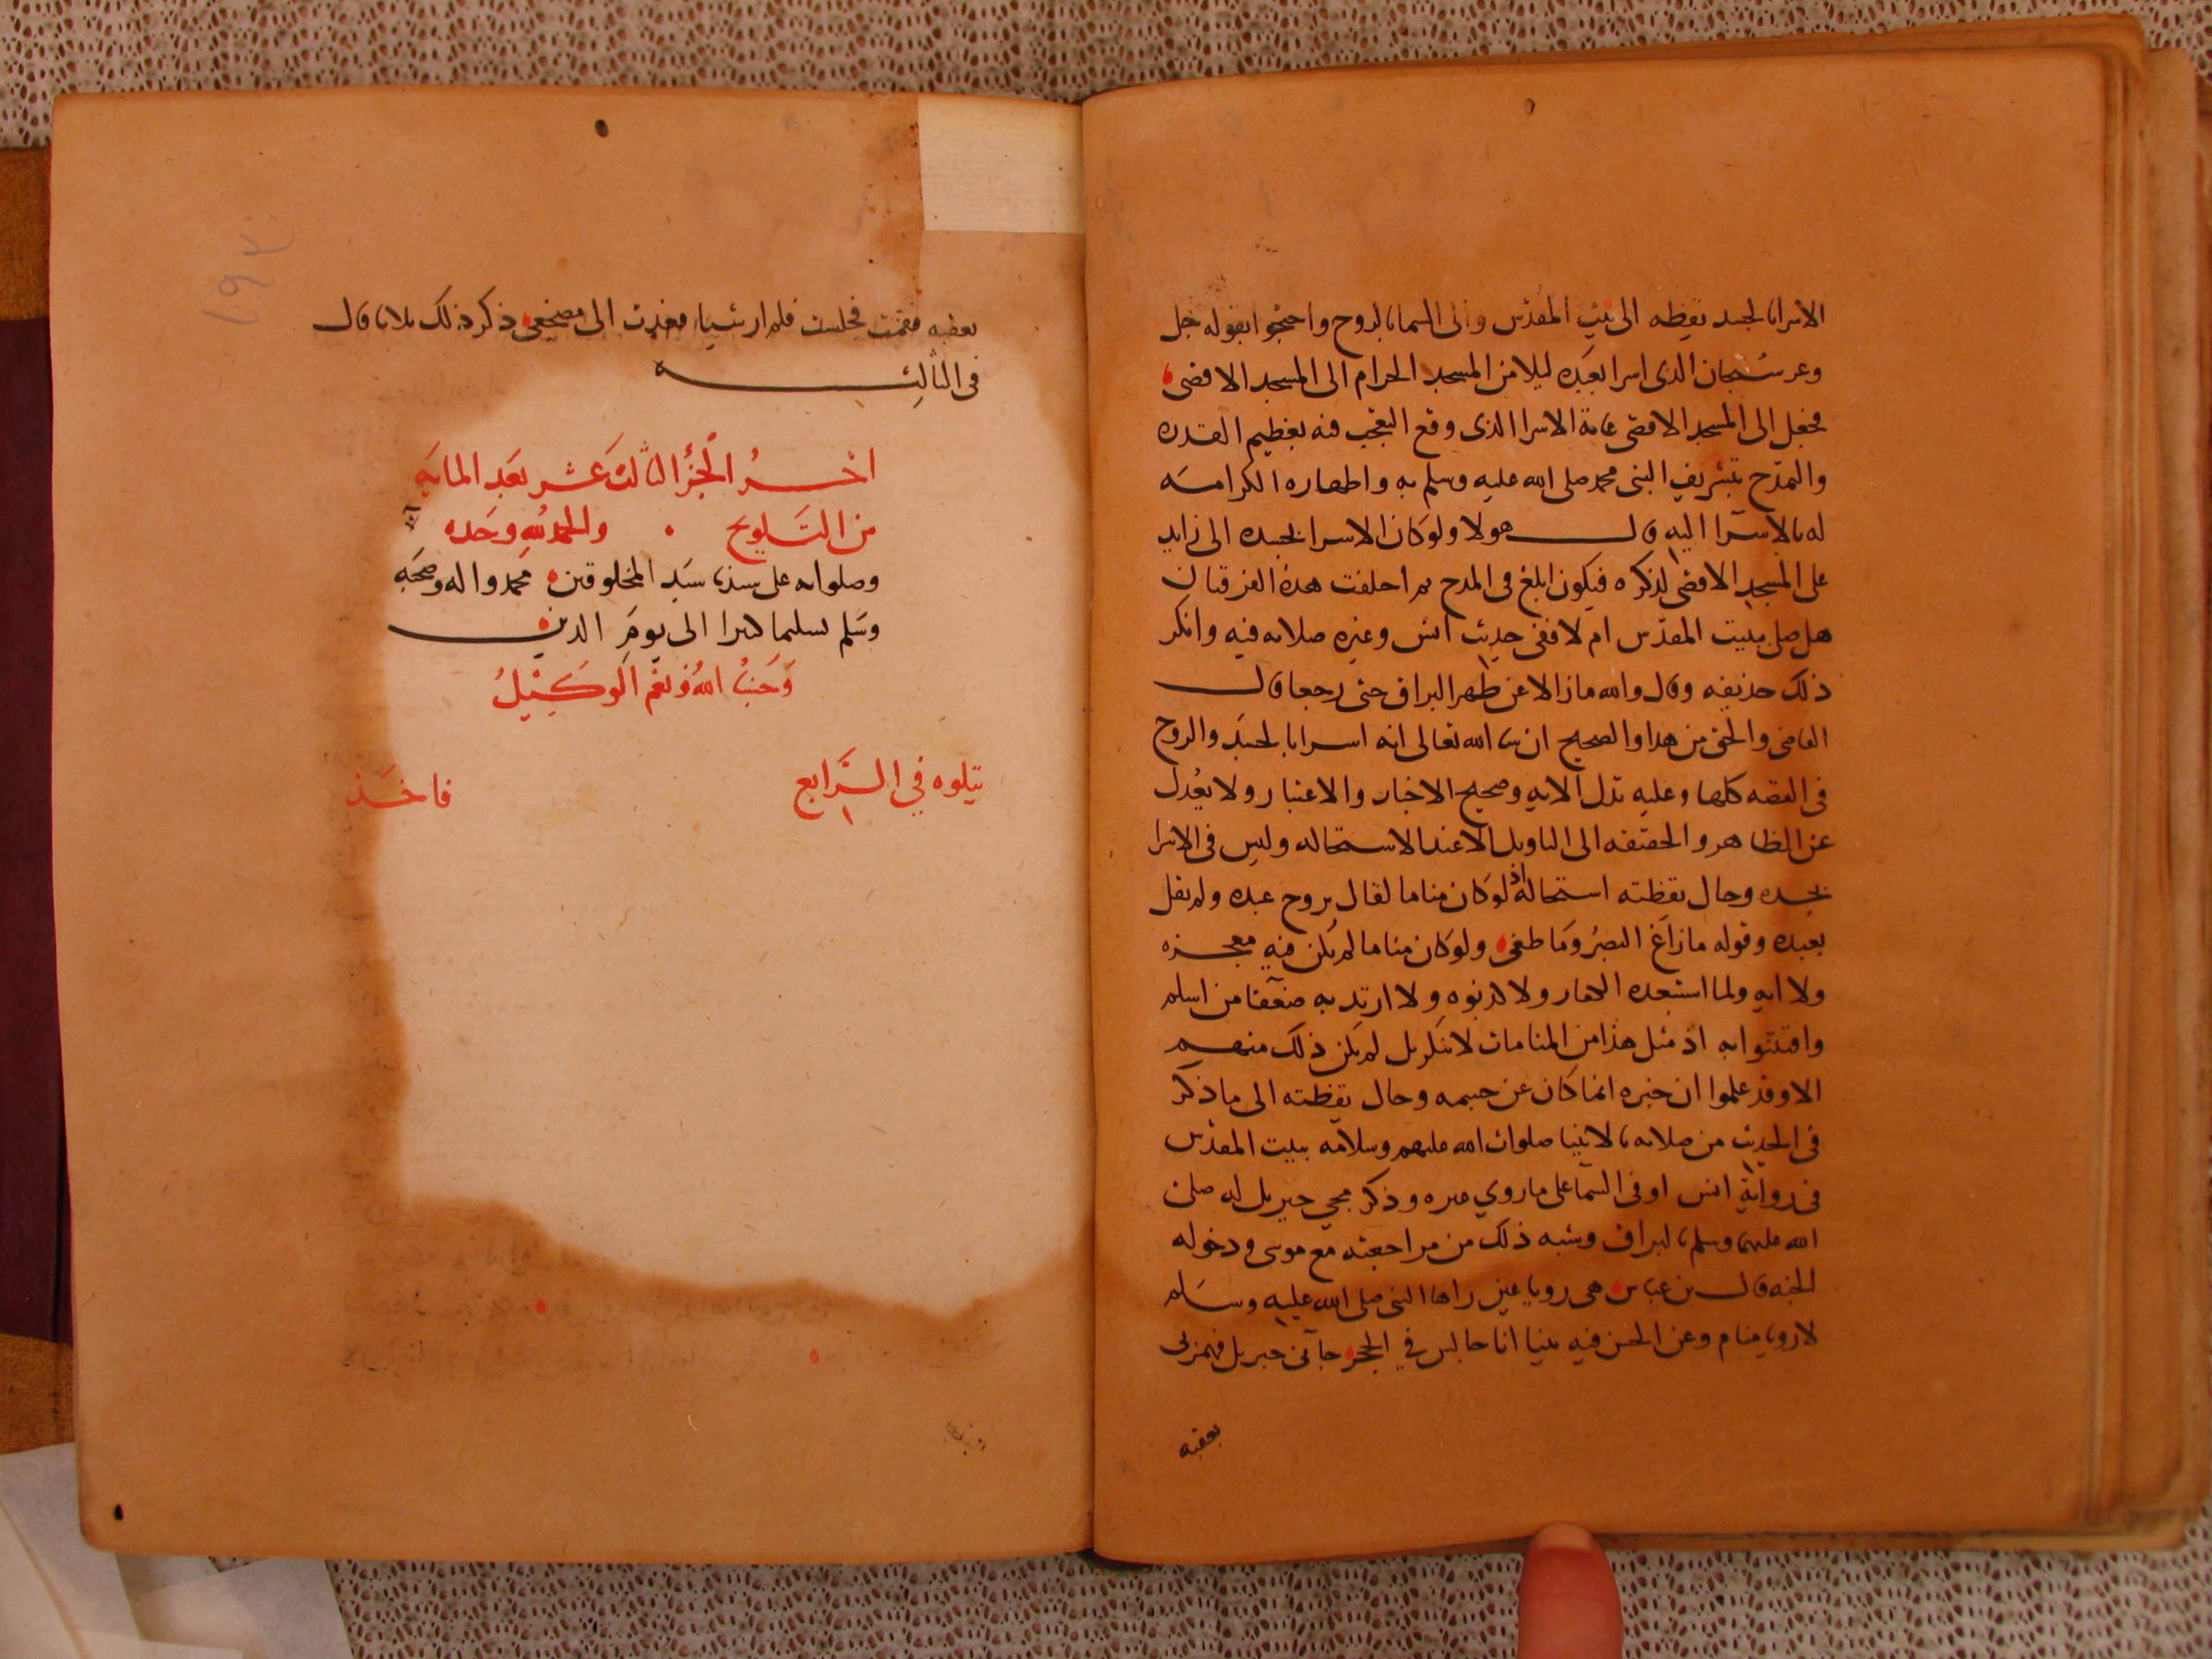 الاسرا بالجسد يقظه الى بيت المقدس والى السما بالروح واحتجوا بقوله جل
وعز سبحان الذى اسرا بعبده ليلا من المسجد الحرام الى المسجد الاقصى
فجعل الى المسجد الاقصى غاية الاسرا الذى وقع التعجب فيه بعظيم القدره
والتمدح بتشريف النبى محمد صلى الله عليه وسلم به واظهاره الكرامه
له بالاسرآ اليه قال هولا ولو كان الاسرا بجسده الى زايد
على المسجد الاقصى لذكره فيكون ابلغ فى المدح ثم اختلفت هذه الفرقتان
هل صلى ببيت المقدس ام لا ففى حديث انس وغيره صلاته فيه وانكر
ذلك حذيفه وقال والله ما زالا عن ظهر البراق حتى رجعا قال
القاضى والحق من هدا والصحيح ان شا الله تعالى انه اسرا بالجسد والروح
فى القصه كلها وعليه تدل الايه وصحيح الاخبار والاعتبار ولا يعدل
عن الظاهر والحقيقه الى التاويل الا عند الاستحاله وليس فى الاسرا
بجسده وحال يقظته استحالة اذ لو كان مناما لقال بروح عبده ولم يقل
بعبده وقوله ما زاغ البصر وما طغى ولو كان مناما لم يكن فيه معجزه
ولا ايه ولما استبعده الكفار ولا كذبوه ولا ارتد به ضعفا من اسلم
وافتتنوا به اذ مثل هذا من المنامات لا ينكر بل لم يكن ذلك منهم
الا وقد علموا ان خبره انما كان عن جسمه وحال يقظته الى ما ذكر
فى الحديث من صلاته بالانبيا صلوات الله عليهم وسلامه ببيت المقدس
فى رواية انس او فى السما على ما روي غيره وذكر مجي جبريل له صلى
الله عليهما وسلم بالبراق وشبه ذلك من مراجعته مع موسى ودخوله
الجنه قال بن عباس هى رويا عين راها النبى صلى الله عليه وسلم
لا رويا منام وعن الحسن فيه بينا انا جالس في الحجر جآنى جبريل فهمزنى
بعقبه
بعقبه فقمت فجلست فلم ار شيا فعدت الى مضجعى ذكر ذلك ثلاثا قال
فى الثالثه
اخر الجزء الثالث عشر بعد المايه
من التلويح والحمد لله وحده
وصلواته على سيدنا سيد المخلوقين محمد واله وصحبه
وسلم تسليما كثيرا الى يوم الدين
وحسبنا الله ونعم الوكيل
يتلوه في الرابع فاخذ